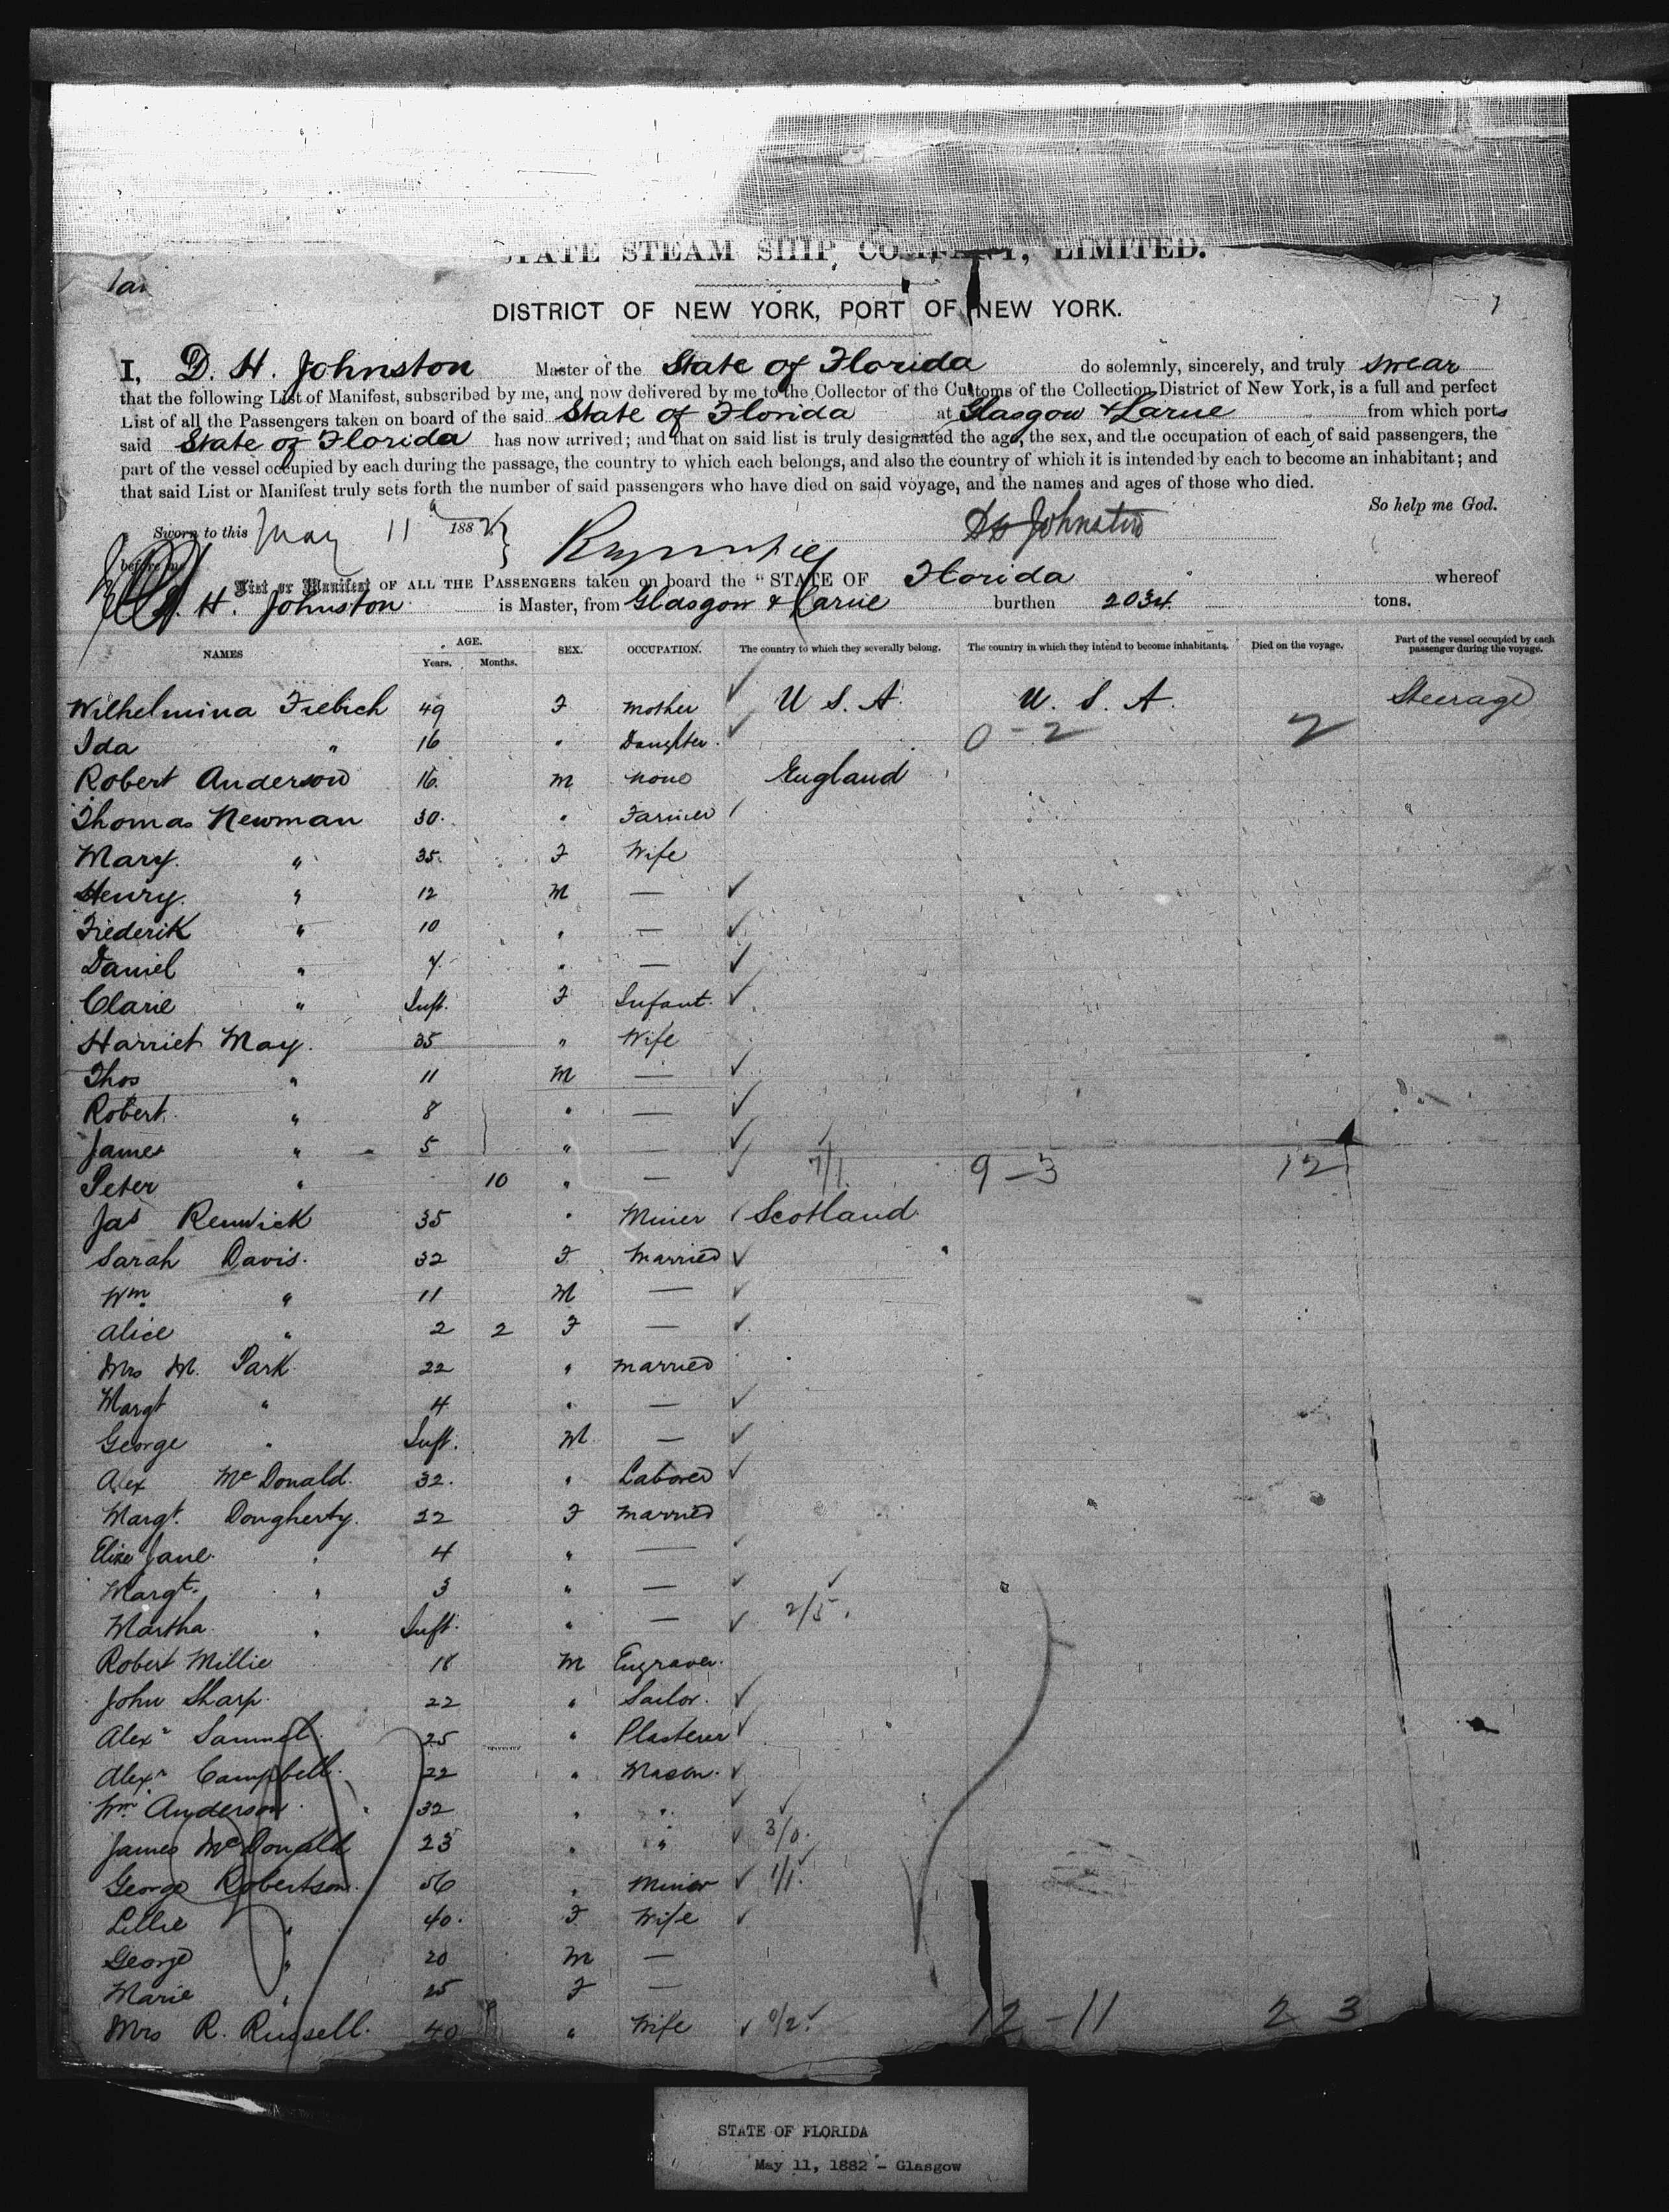 STATE STEAM SHIP COMPANY, LIMITED.
DISTRICT OF NEW YORK, PORT OF NEW YORK.
I, D. H. Johnston Master of the State of Florida do solemnly, sincerely, and truly swear
that the following List of Manifest, subscribed by me, and now delivered by me to the Collector of the Customs of the Collection District of New York, is a full and perfect
List of all the Passengers taken on board of the said State of Florida at Glasgow & Larne from which ports
said State of Florida has now arrived; and that on said list is truly designated the age, the sex, and the occupation of each of said passengers, the
part of the vessel occupied by each during the passage, the country to which each belongs, and also the country of which it is intended by each to become an inhabitant; and
that said List or Manifest truly sets forth the number of said passengers who have died on said voyage, and the names and ages of those who died.
So help me God.
Sworn to this May 11 1882 Johnston
before me
List or Manifest OF ALL THE PASSENGERS taken on board the "STATE OF Florida whereof
D. H. Johnston is Master, from Glasgow & Larne burthen 2034 tons.
NAMES AGE. Years. Months. SEX. OCCUPATION. The country to which they severally belong. The country in which they intend to become inhabitants. Died on the voyage. Part of the vessel occupied by each passenger during the voyage.
Wilhelmina Fiebich 49 F Mother U S. A. U. S. A. Steerage
Ida " 16 " Daughter 0-2 2
Robert Anderson 16 M None England
Thomas Newman 30 " Farmer
Mary " 35 F Wife
Henry " 12 M —
Frederik " 10 " —
Daniel " 7 " —
Clarie " Inft. F Infant
Harriet May 35 " Wife
Thos " 11 M —
Robert " 8 " —
James " 5 " —
Peter " 10 " — 7/1 9-3 12
Jas Renwick 35 " Miner Scotland
Sarah Davis 32 F Married
Wm " 11 M —
Alice " 2 2 F —
Mrs M. Park 22 " Married
Margt " 4 " —
George " Inft. M —
Alex McDonald 32 " Laborer
Margt. Dougherty 22 F Married
Eliza Jane " 4 " —
Margt. " 3 " —
Martha " Inft. " — 2/5
Robert Millie 18 M Engraver
John Sharp 22 " Sailor
Alexr Samuel 25 " Plasterer
Alexr Campbell 22 " Mason
Wm Anderson 32 " "
James McDonald 23 " " 3/0
George Robertson 56 " Miner 1/1
Lillie " 40 F Wife
George " 20 M —
Marie " 25 F —
Mrs R. Russell 40 " Wife 0/2 12-11 2 3
STATE OF FLORIDA
May 11, 1882 - Glasgow